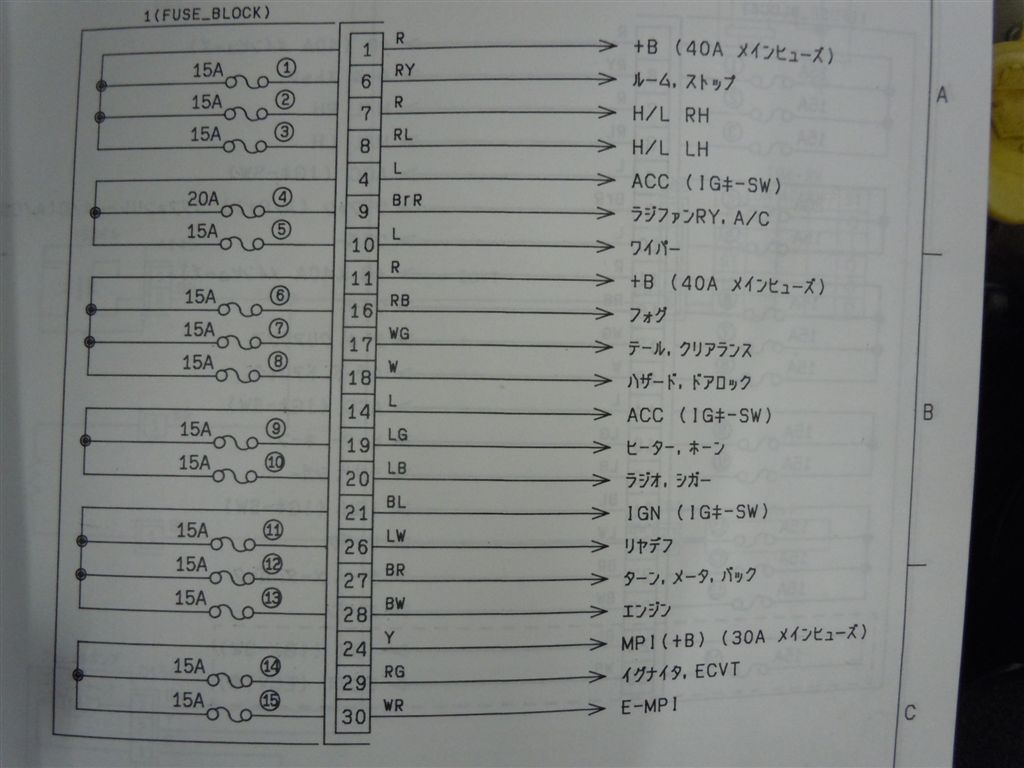 1(FUSE_BLOCK)
1 R +B (40A メインヒューズ)
15A ① 6 RY ルーム, ストップ
15A ② 7 R H/L RH
15A ③ 8 RL H/L LH
4 L ACC (IGキーSW)
20A ④ 9 BrR ラジファンRY, A/C
15A ⑤ 10 L ワイパー
11 R +B (40A メインヒューズ)
15A ⑥ 16 RB フォグ
15A ⑦ 17 WG テール, クリアランス
15A ⑧ 18 W ハザード, ドアロック
14 L ACC (IGキーSW)
15A ⑨ 19 LG ヒーター, ホーン
15A ⑩ 20 LB ラジオ, シガー
21 BL IGN (IGキーSW)
15A ⑪ 26 LW リヤデフ
15A ⑫ 27 BR ターン, メータ, バック
15A ⑬ 28 BW エンジン
24 Y MPI(+B) (30A メインヒューズ)
15A ⑭ 29 RG イグナイタ, ECVT
15A ⑮ 30 WR E-MPI
A
B
C